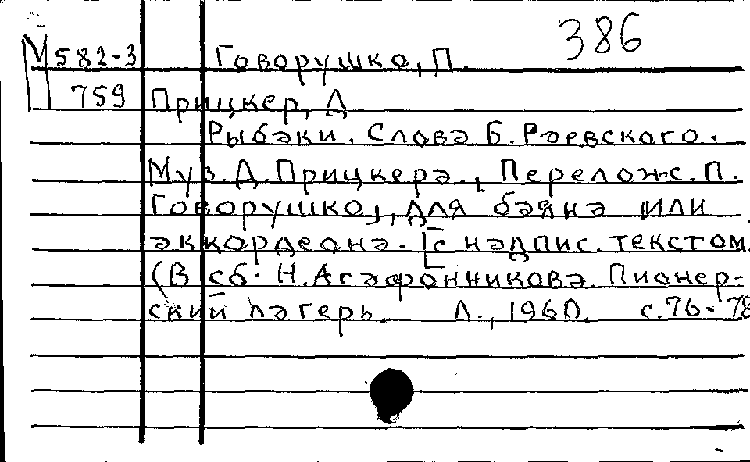 386
М 582-3 Говорушко, П.
759 Прицкер, Д
Рыбаки. Слова Б. Раевского.
Муз. Д. Прицкера., Перелож. П.
Говорушко, для баяна или
аккордеона. [с надпис. текстом.
(В сб: Н. Агафонникова. Пионер-
ский лагерь. Л., 1960. с. 76-78